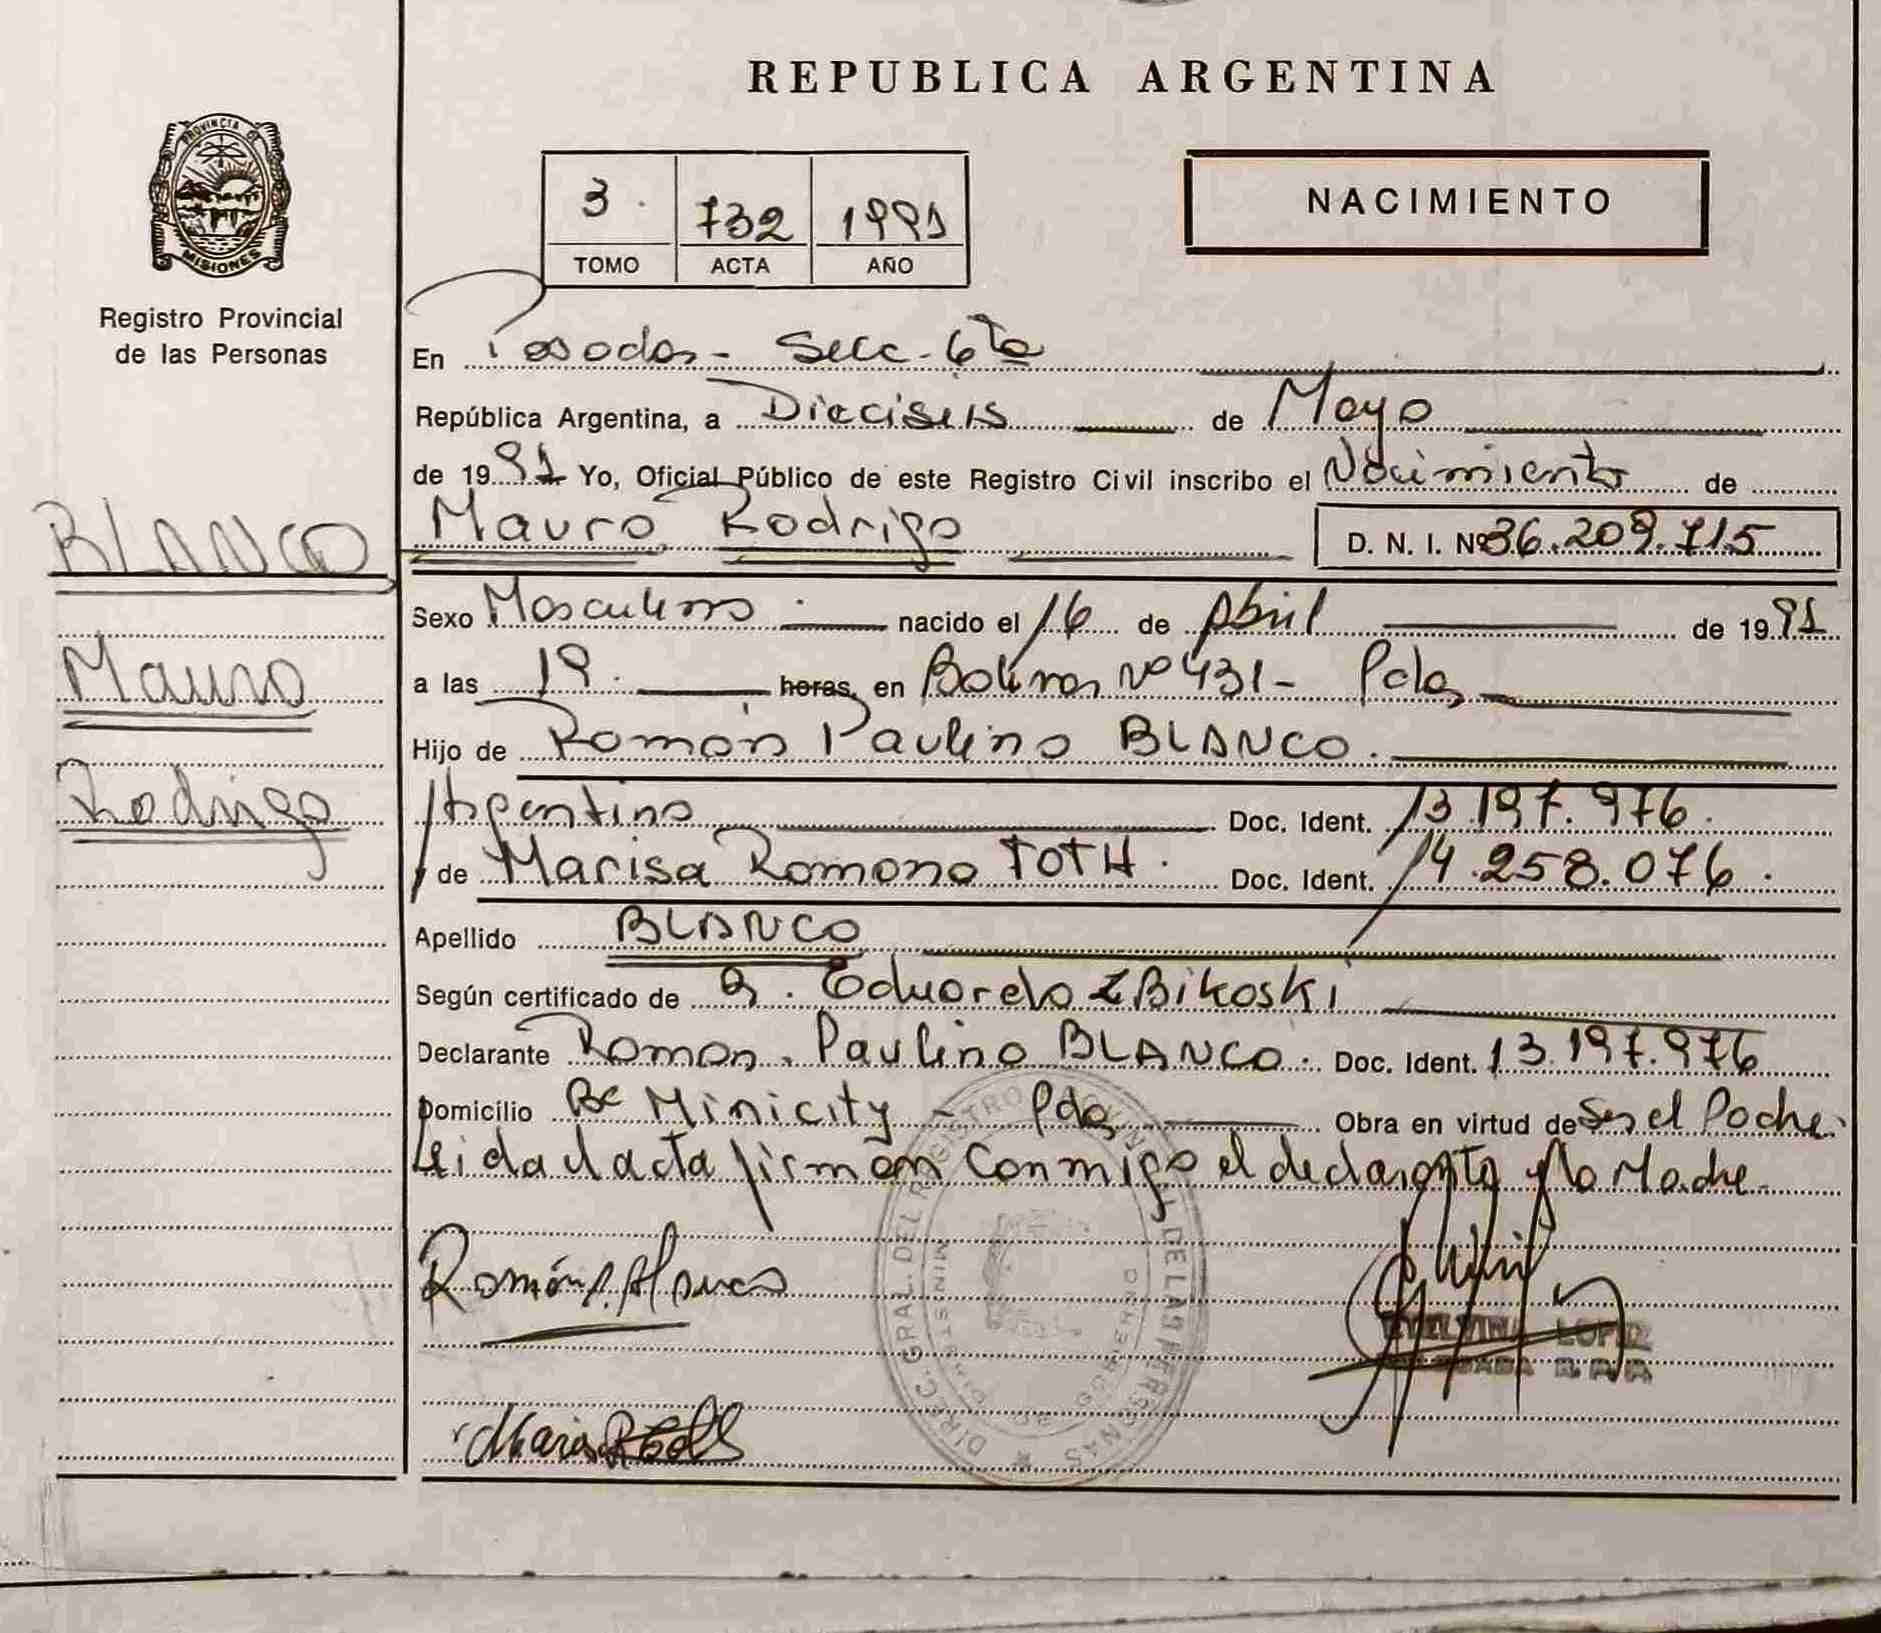 REPUBLICA ARGENTINA
PROVINCIA DE
MISIONES
Registro Provincial
de las Personas
3 732 1991
TOMO ACTA AÑO
NACIMIENTO
En Posadas - Secc. 6ta
República Argentina, a Dieciseis de Mayo
de 1991 Yo, Oficial Público de este Registro Civil inscribo el Nacimiento de
Mauro Rodrigo D. N. I. Nº 36.209.715
BLANCO
Mauro
Rodrigo
Sexo Masculino nacido el 16 de Abril de 1991
a las 19. horas, en Bolivar Nº 431 - Pdas
Hijo de Román Paulino BLANCO.
Argentino Doc. Ident. 13.197.976.
y de Marisa Romona TOTH. Doc. Ident. 14.258.076.
Apellido BLANCO
Según certificado de Eduardo ZBikoski
Declarante Roman Paulino BLANCO. Doc. Ident. 13.197.976
Domicilio Bº Minicity - Pdas Obra en virtud de Ser el Padre.
Leida el acta firman conmigo el declarante y la Madre
Román P. Blanco
LOPEZ
R. P. P.
DIREC. GRAL. DEL REGISTRO PROVINCIAL DE LAS PERSONAS
MINISTERIO DE GOBIERNO